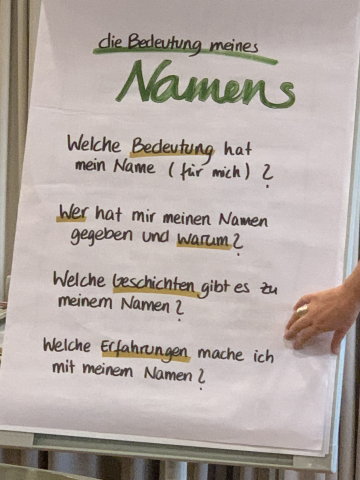 die Bedeutung meines
Namens
Welche Bedeutung hat
mein Name (für mich)?
Wer hat mir meinen Namen
gegeben und warum?
Welche Geschichten gibt es zu
meinem Namen?
Welche Erfahrungen mache ich
mit meinem Namen?